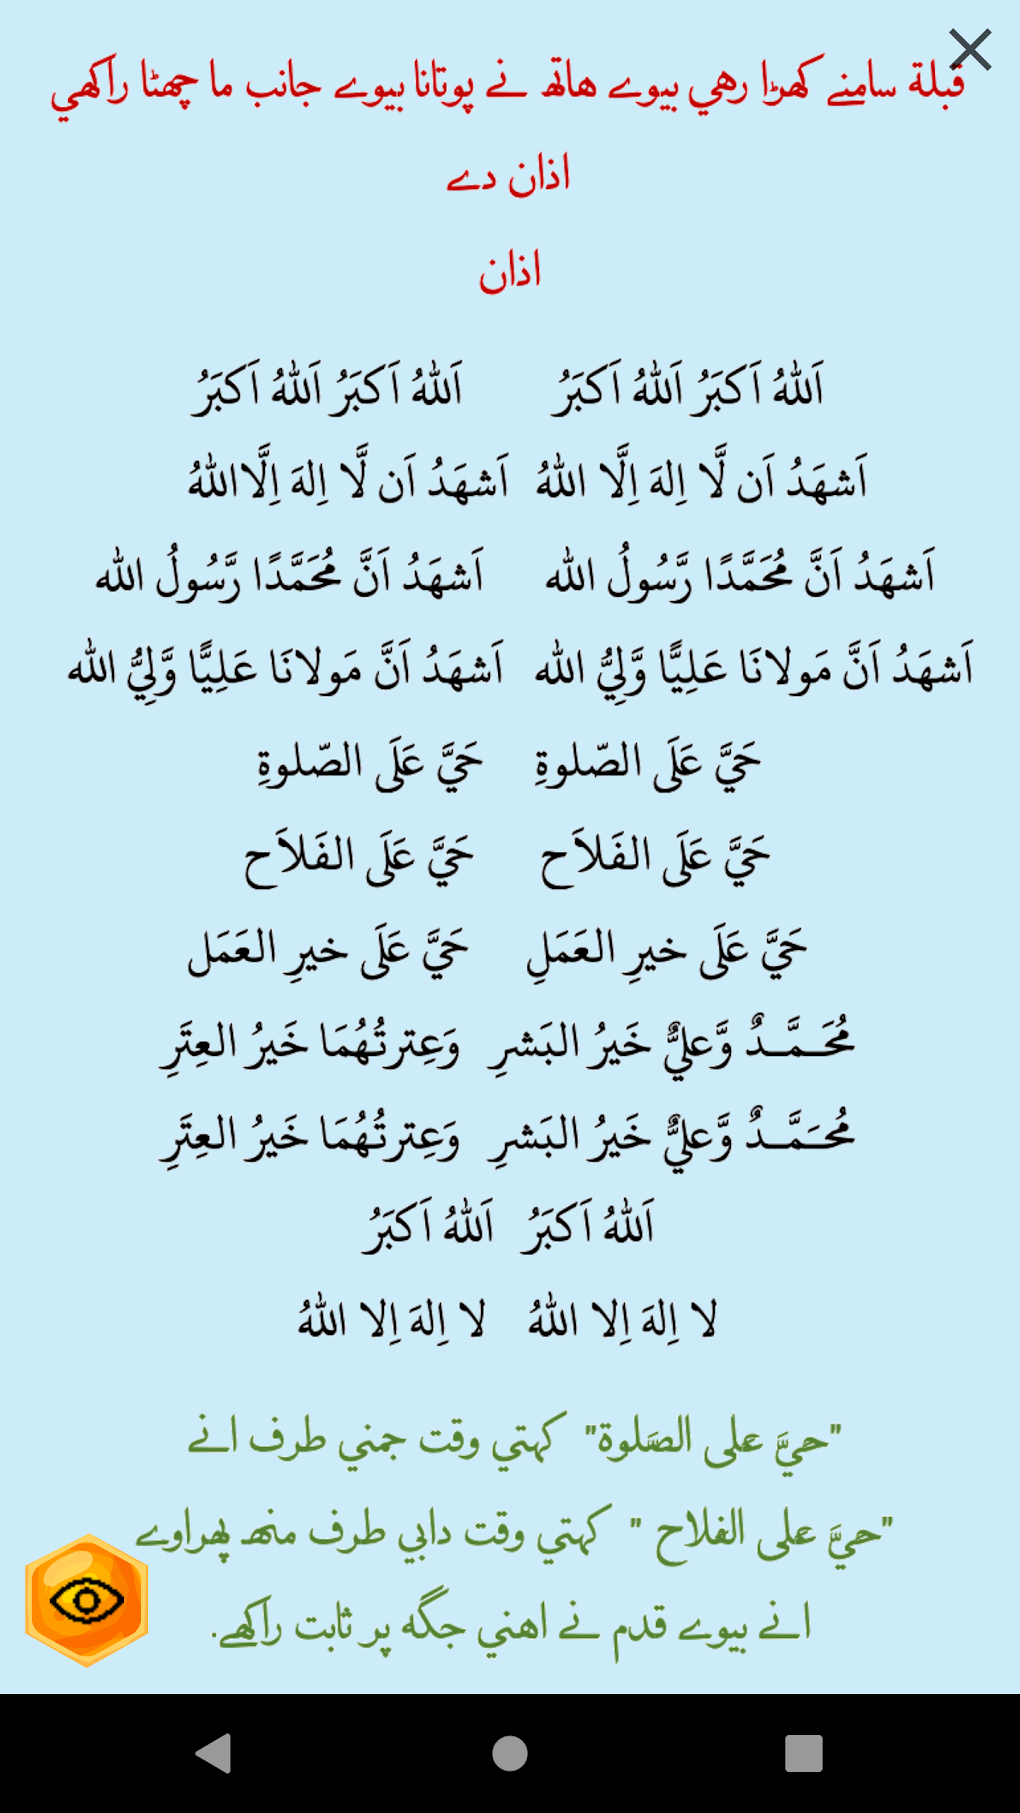 قبلة سامنے كهڑا رهي بيوے هاتھ نے پوتانا بيوے جانب ما چھٹا راكهي
اذان دے
اذان
اَللهُ اَكبَرُ اَللهُ اَكبَرُ اَللهُ اَكبَرُ اَللهُ اَكبَرُ
اَشهَدُ اَن لَّا اِلهَ اِلَّا اللهُ اَشهَدُ اَن لَّا اِلهَ اِلَّااللهُ
اَشهَدُ اَنَّ مُحَمَّدًا رَّسُولُ الله اَشهَدُ اَنَّ مُحَمَّدًا رَّسُولُ الله
اَشهَدُ اَنَّ مَولانَا عَلِيًّا وَّلِيُّ الله اَشهَدُ اَنَّ مَولانَا عَلِيًّا وَّلِيُّ الله
حَيَّ عَلَى الصّلوةِ حَيَّ عَلَى الصّلوةِ
حَيَّ عَلَى الفَلاَح حَيَّ عَلَى الفَلاَح
حَيَّ عَلَى خيرِ العَمَلِ حَيَّ عَلَى خيرِ العَمَل
مُحَـــمَّـــدٌ وَّعليٌّ خَيرُ البَشرِ وَعِترتُهُمَا خَيرُ العِتَرِ
مُحـَـمَّـــدٌ وَّعليٌّ خَيرُ البَشرِ وَعِترتُهُمَا خَيرُ العِتَرِ
اَللهُ اَكبَرُ اَللهُ اَكبَرُ
لا اِلهَ اِلا اللهُ لا اِلهَ اِلا اللهُ
"حيَّ على الصَلوة" كهتي وقت جمني طرف انے
"حيَّ على الفلاح " كهتي وقت دابي طرف منھ پھراوے
انے بيوے قدم نے اهني جگه پر ثابت راكهے.